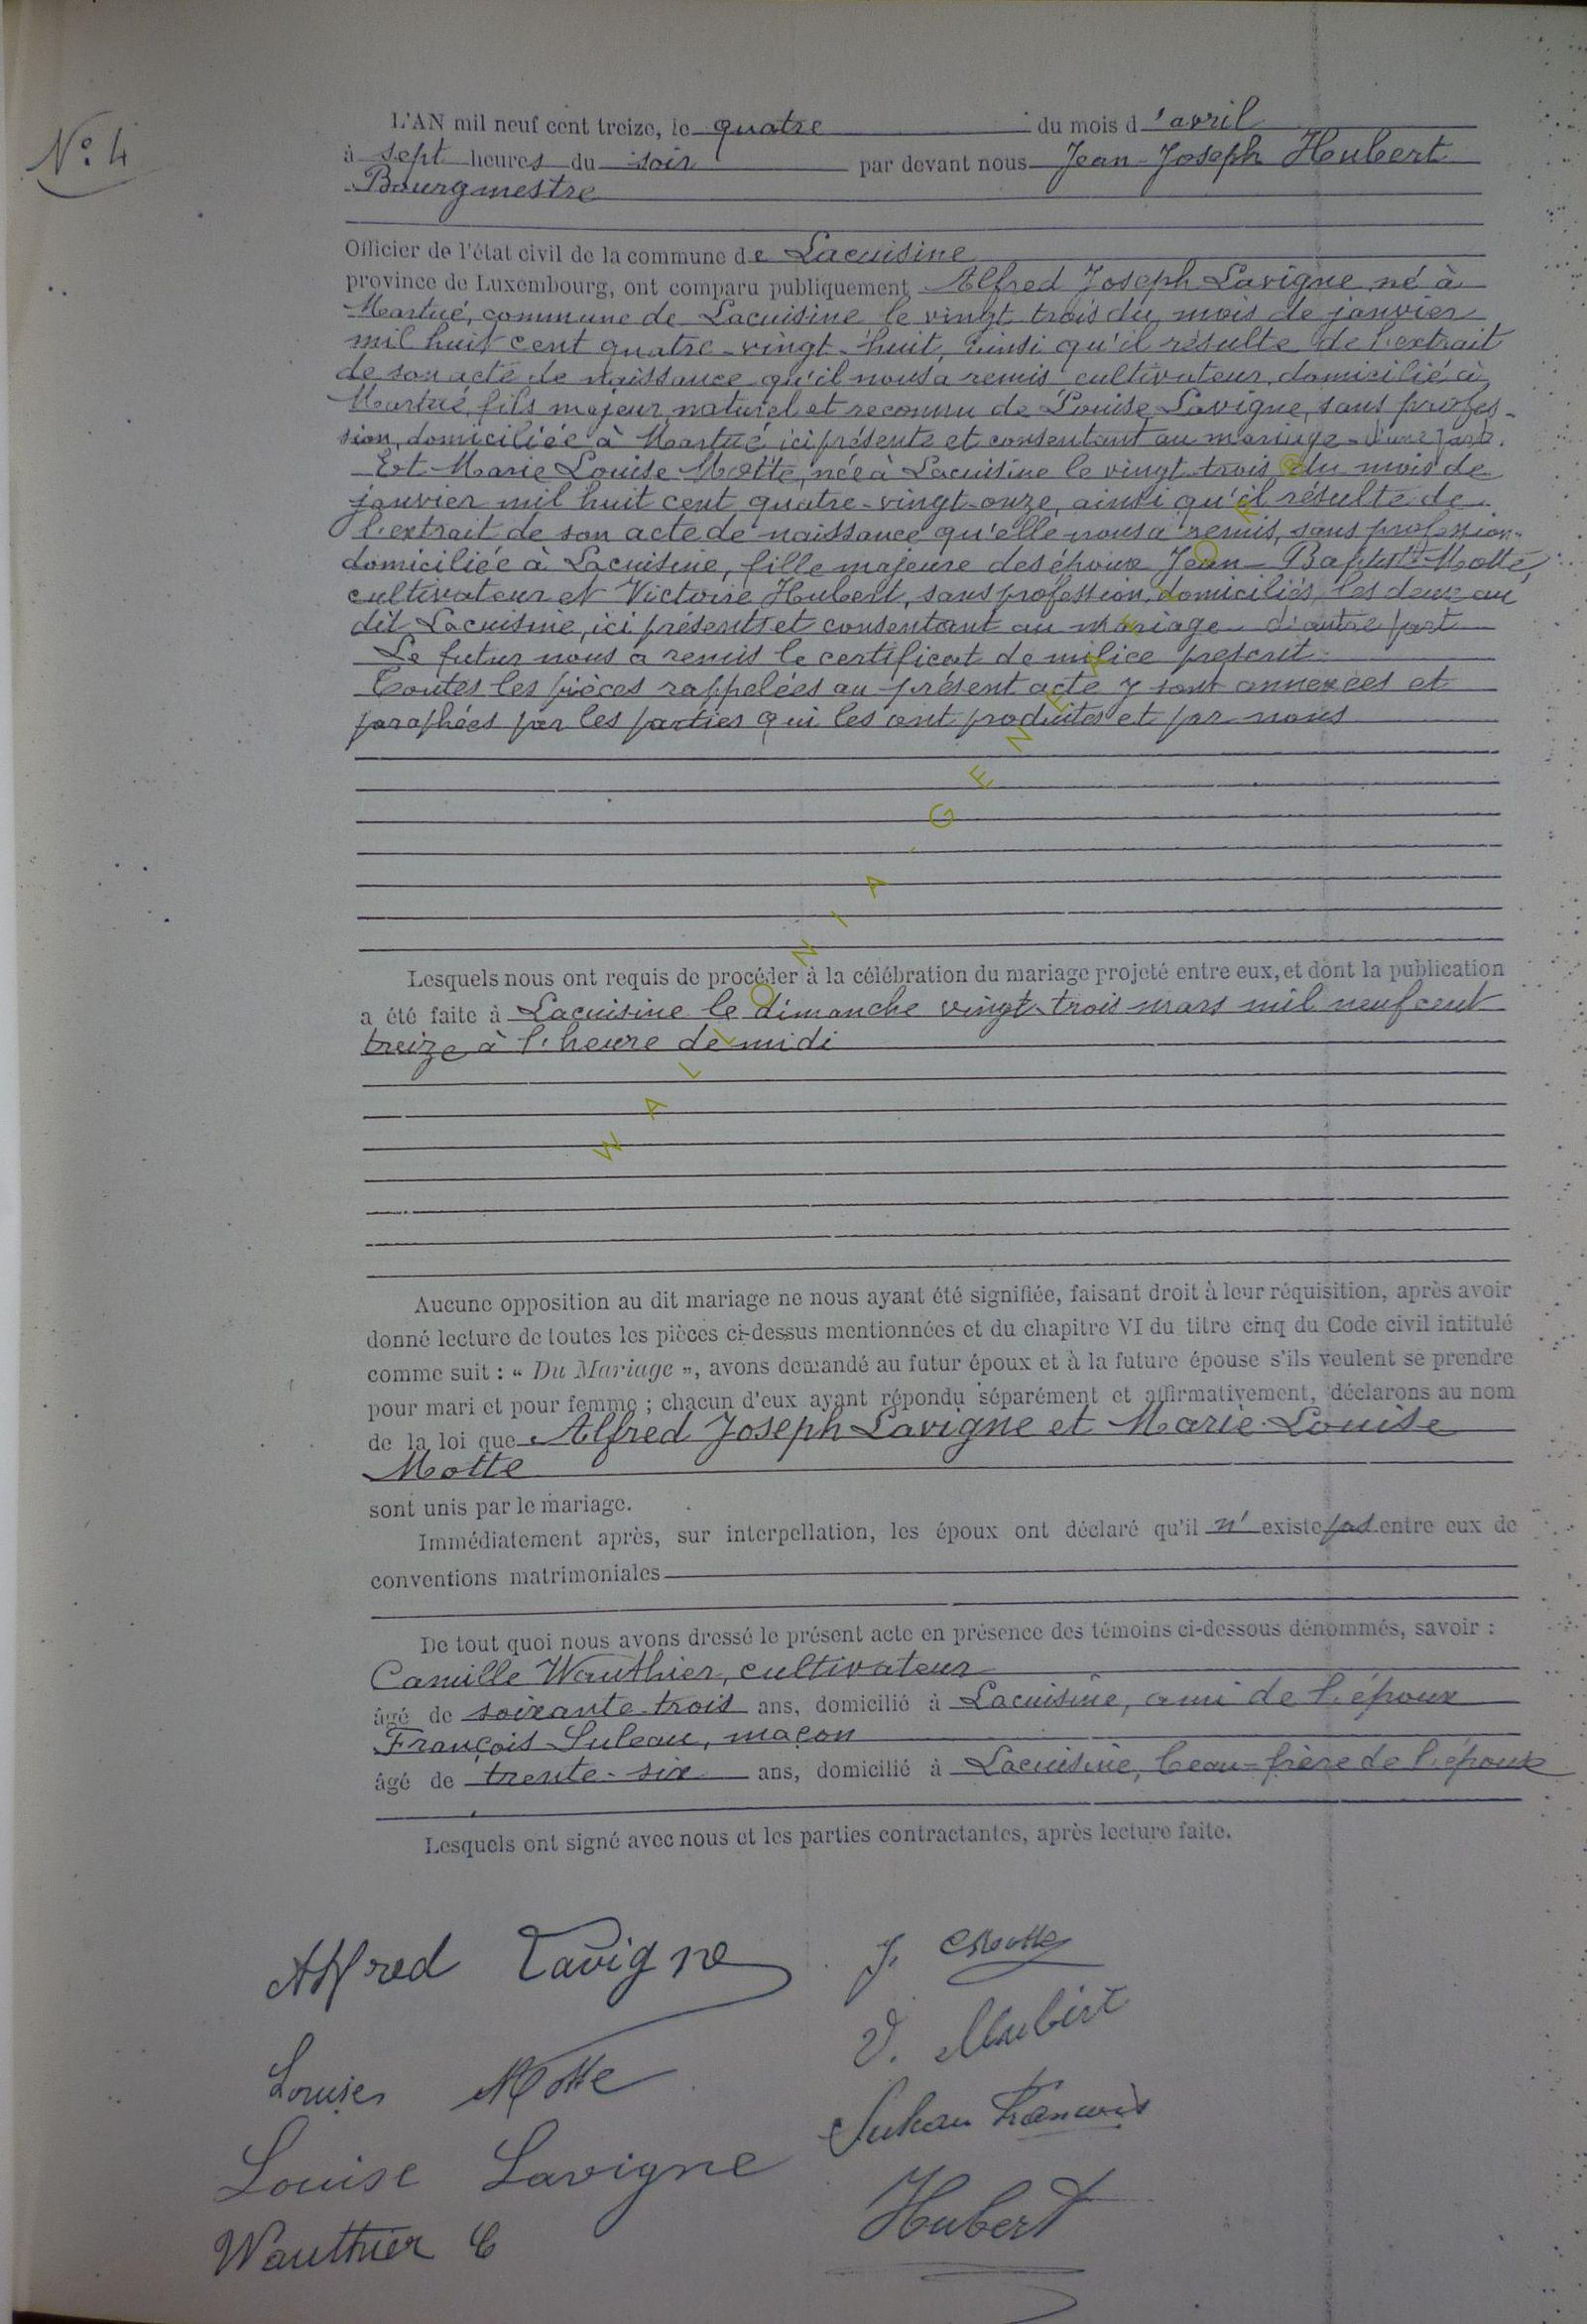 N.° 4
L'AN mil neuf cent treize, le quatre du mois d'avril
à sept heures du soir par devant nous Jean-Joseph Hubert
Bourgmestre
Officier de l'état civil de la commune de Lacuisine
province de Luxembourg, ont comparu publiquement Alfred Joseph Lavigne né à
Martué, commune de Lacuisine le vingt trois du mois de janvier
mil huit cent quatre-vingt-huit, ainsi qu'il résulte de l'extrait
de son acte de naissance qu'il nous a remis cultivateur, domicilié à
Martué, fils majeur, naturel et reconnu de Louise Lavigne, sans profes-
sion, domiciliée à Martué ici présente et consentant au mariage d'une part.
Et Marie Louise Motte, née à Lacuisine le vingt trois du mois de
janvier mil huit cent quatre-vingt-onze, ainsi qu'il résulte de
l'extrait de son acte de naissance qu'elle nous a remis, sans profession.
domiciliée à Lacuisine, fille majeure des époux Jean-Baptiste Motte,
cultivateur et Victoire Hubert, sans profession, domiciliés les deux au
dit Lacuisine, ici présents et consentant au mariage d'autre part
Le futur nous a remis le certificat de milice prescrit.
Toutes les pièces rappelées au présent acte y sont annexées et
paraphées par les parties qui les ont produites et par nous
Lesquels nous ont requis de procéder à la célébration du mariage projeté entre eux, et dont la publication
a été faite à Lacuisine le dimanche vingt-trois mars mil neuf cent
treize à l'heure de midi
Aucune opposition au dit mariage ne nous ayant été signifiée, faisant droit à leur réquisition, après avoir
donné lecture de toutes les pièces ci-dessus mentionnées et du chapitre VI du titre cinq du Code civil intitulé
comme suit : « Du Mariage », avons demandé au futur époux et à la future épouse s'ils veulent se prendre
pour mari et pour femme ; chacun d'eux ayant répondu séparément et affirmativement, déclarons au nom
de la loi que Alfred Joseph Lavigne et Marie-Louise
Motte
sont unis par le mariage.
Immédiatement après, sur interpellation, les époux ont déclaré qu'il n'existe pas entre eux de
conventions matrimoniales
De tout quoi nous avons dressé le présent acte en présence des témoins ci-dessous dénommés, savoir :
Camille Wauthier, cultivateur
âgé de soixante-trois ans, domicilié à Lacuisine, ami de l'époux
François Suleau, maçon
âgé de trente-six ans, domicilié à Lacuisine, beau-frère de l'époux
Lesquels ont signé avec nous et les parties contractantes, après lecture faite.
Alfred Lavigne
J. Motte
V. Hubert
Louise Motte
Suleau François
Louise Lavigne
Hubert
Wauthier C
WALLONIA-GENEALOR©